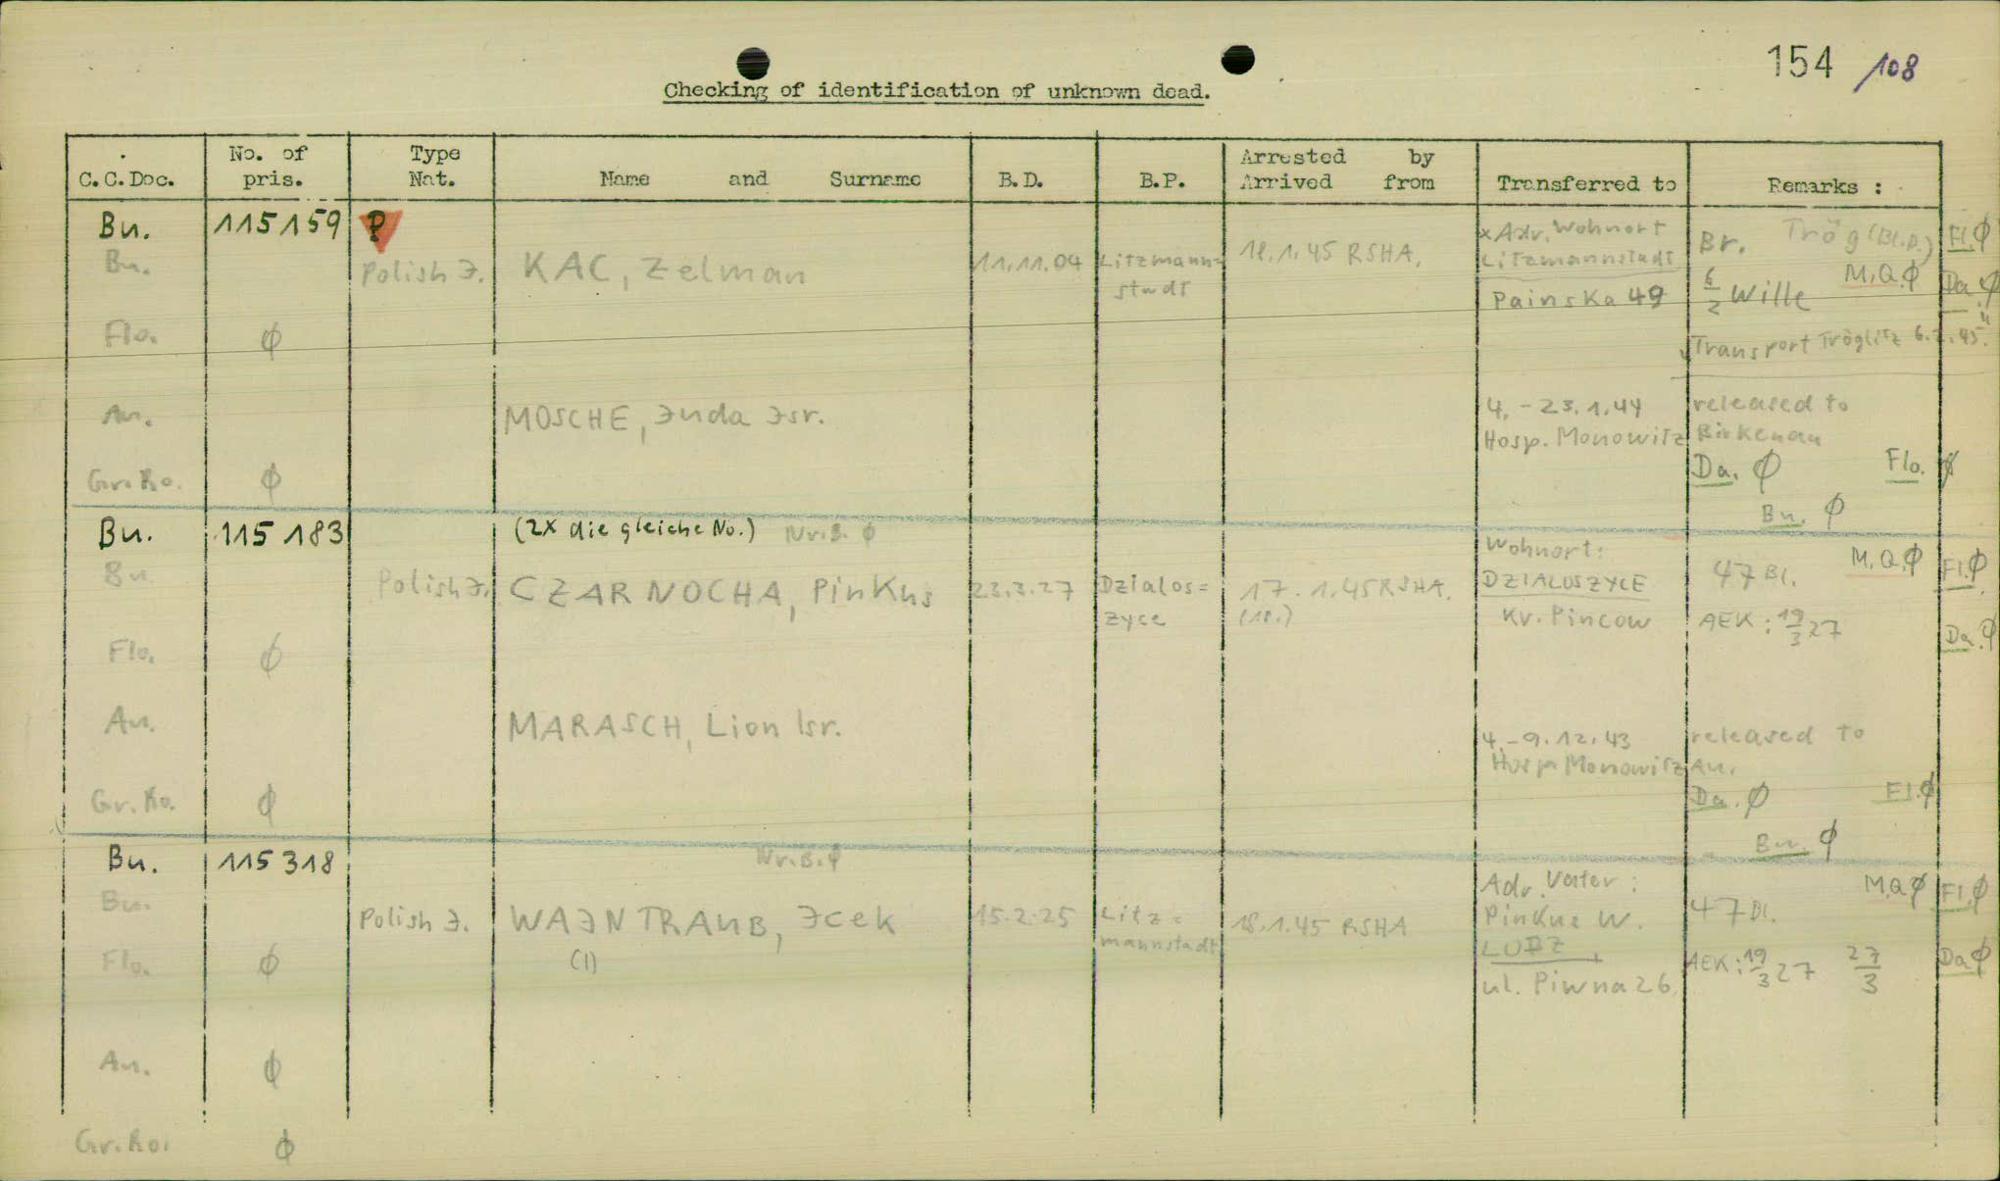 154 /108
Checking of identification of unknown dead.
C.C.Doc. No. of pris. Type Nat. Name and Surname B.D. B.P. Arrested by Arrived from Transferred to Remarks :
Bu. 115159 P
Bu. Polish J. KAC, Zelman 11.11.04 Litzmann=
stadt
18.1.45 RSHA.
x Adr. Wohnort
Litzmannstadt
Painska 49
Br. Trög (Bl.P.) Fl. Ø
6/2 Wille M.Q. Ø Da. Ø
Transport Tröglitz 6.2.45.
Flo. Ø
Au. MOSCHE, Juda Jsr. 4. - 23.1.44 released to
Hosp. Monowitz Birkenau
Gr.Ro. Ø Da. Ø Flo. Ø
Bu. Ø
Bu. 115183 (2x die gleiche No.) Nr.B. Ø
Bu Polish J. CZARNOCHA, Pinkus 23.3.27 Dzialos=
zyce
17.1.45 RSHA.
(18.)
Wohnort:
DZIALOSZYCE
Kr. Pincow
47 Bl. M.Q. Ø Fl. Ø
AEK: 19/3 27 Da. Ø
Flo. Ø
Au. MARASCH, Lion Isr. 4. - 9.12.43 released to
Hosp Monowitz Au.
Gr.Ro. Ø Da. Ø Fl. Ø
Bu. Ø
Bu. 115318 Nr.B. Ø
Bu.
Polish J. WAJNTRAUB, Jcek 15.2.25 Litz=
mannstadt
(1)
18.1.45 RSHA
Adr. Vater:
Pinkus W.
LODZ
ul. Piwna 26
47 Bl. M.Q Ø Fl. Ø
AEK: 19/3 27 27/3 Da Ø
Flo. Ø
Au. Ø
Gr.Ro. Ø